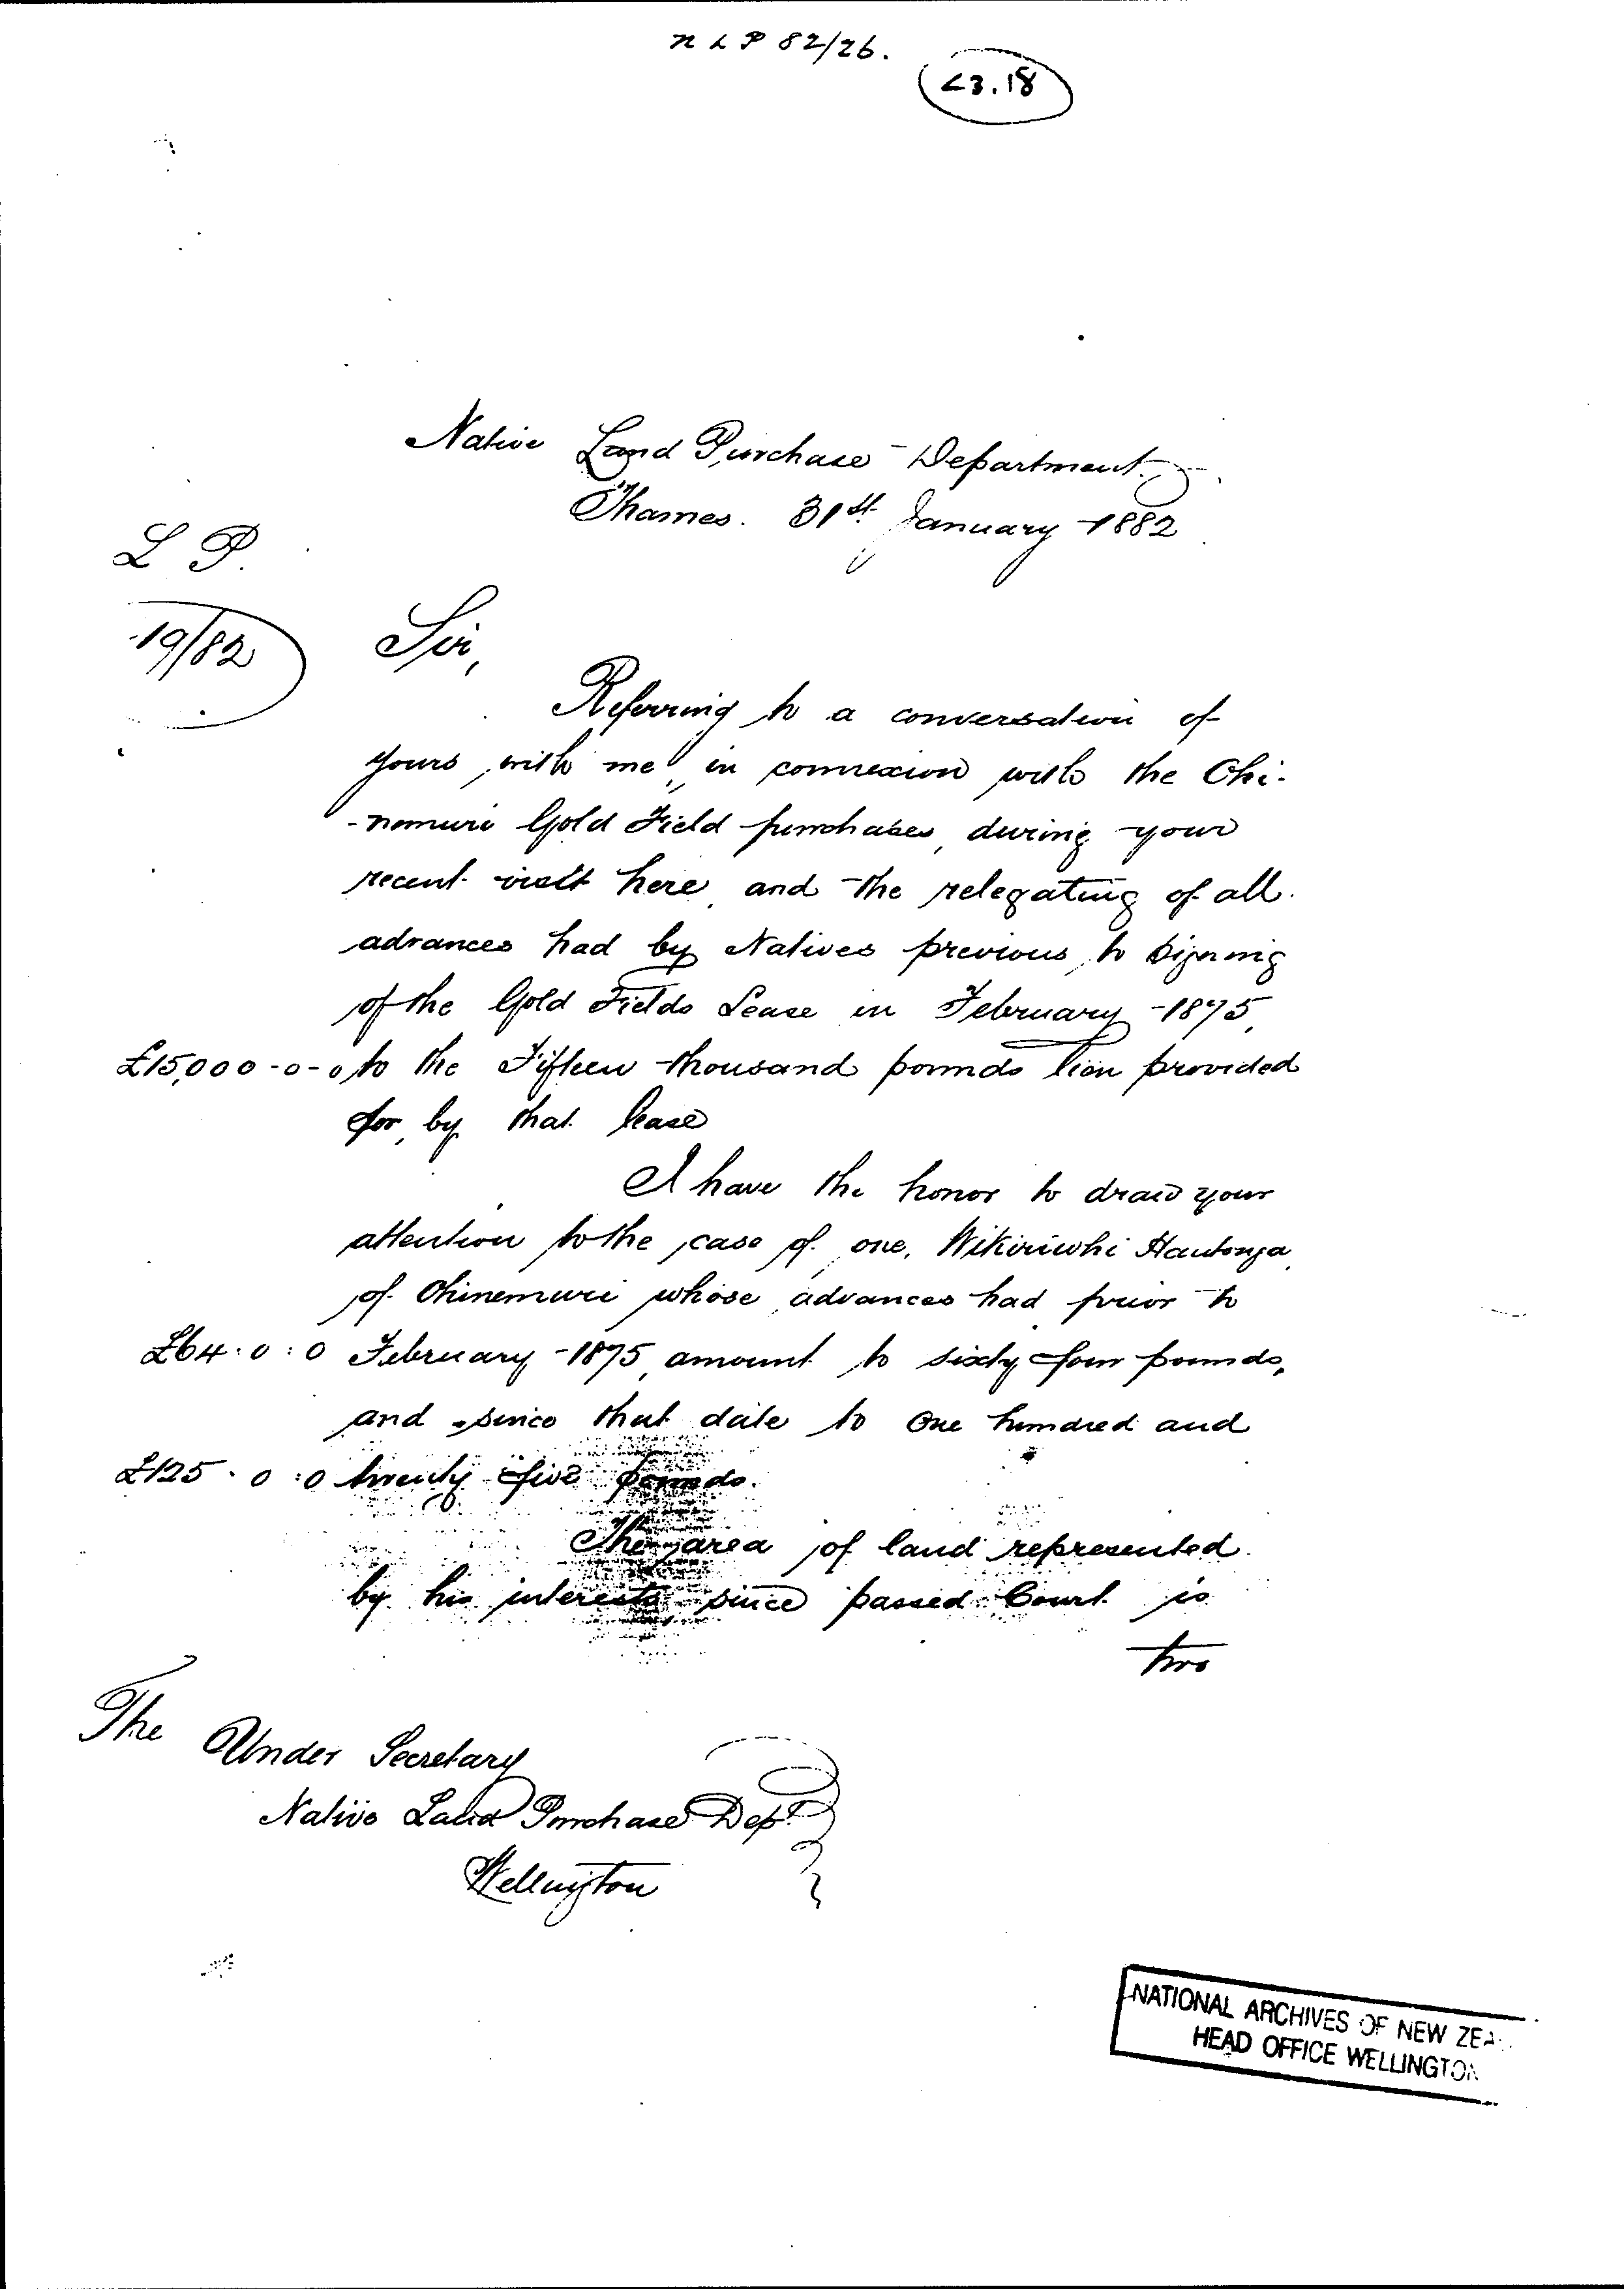 N L P 82/26.
C3.18
Native Land Purchase Department
Thames. 31st January 1882
L P.
19/82
Sir,
Referring to a conversation of
yours, with me, in connexion with the Ohi-
-nemuri Gold Field purchases, during your
recent visit here, and the relegating of all
advances had by Natives previous to signing
of the Gold Fields Lease in February 1875,
£15,000-0-0 to the Fifteen thousand pounds lien provided
for, by that lease
I have the honor to draw your
attention to the case of one, Wikiriwhi Hautonga
of Ohinemuri whose advances had prior to
£64:0:0 February 1875, amount to sixty four pounds,
and since that date to One hundred and
£125.0:0 twenty five pounds.
The area of land represented
by his interests since passed Court is
two
The Under Secretary
Native Land Purchase Dept
Wellington
NATIONAL ARCHIVES OF NEW ZEA
HEAD OFFICE WELLINGTON